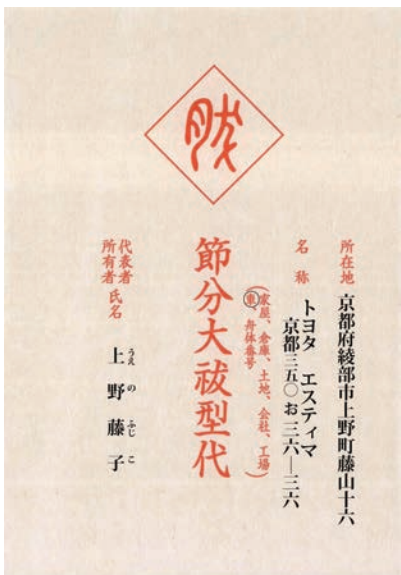 所在地 京都府綾部市上野町藤山十六
名称 トヨタ エスティマ
京都三五〇 お 三六―三六
(家屋、倉庫、土地、会社、工場)
車、舟体番号
節分大祓型代
代表者
所有者 氏名
上野藤子
うえ の ふじ こ